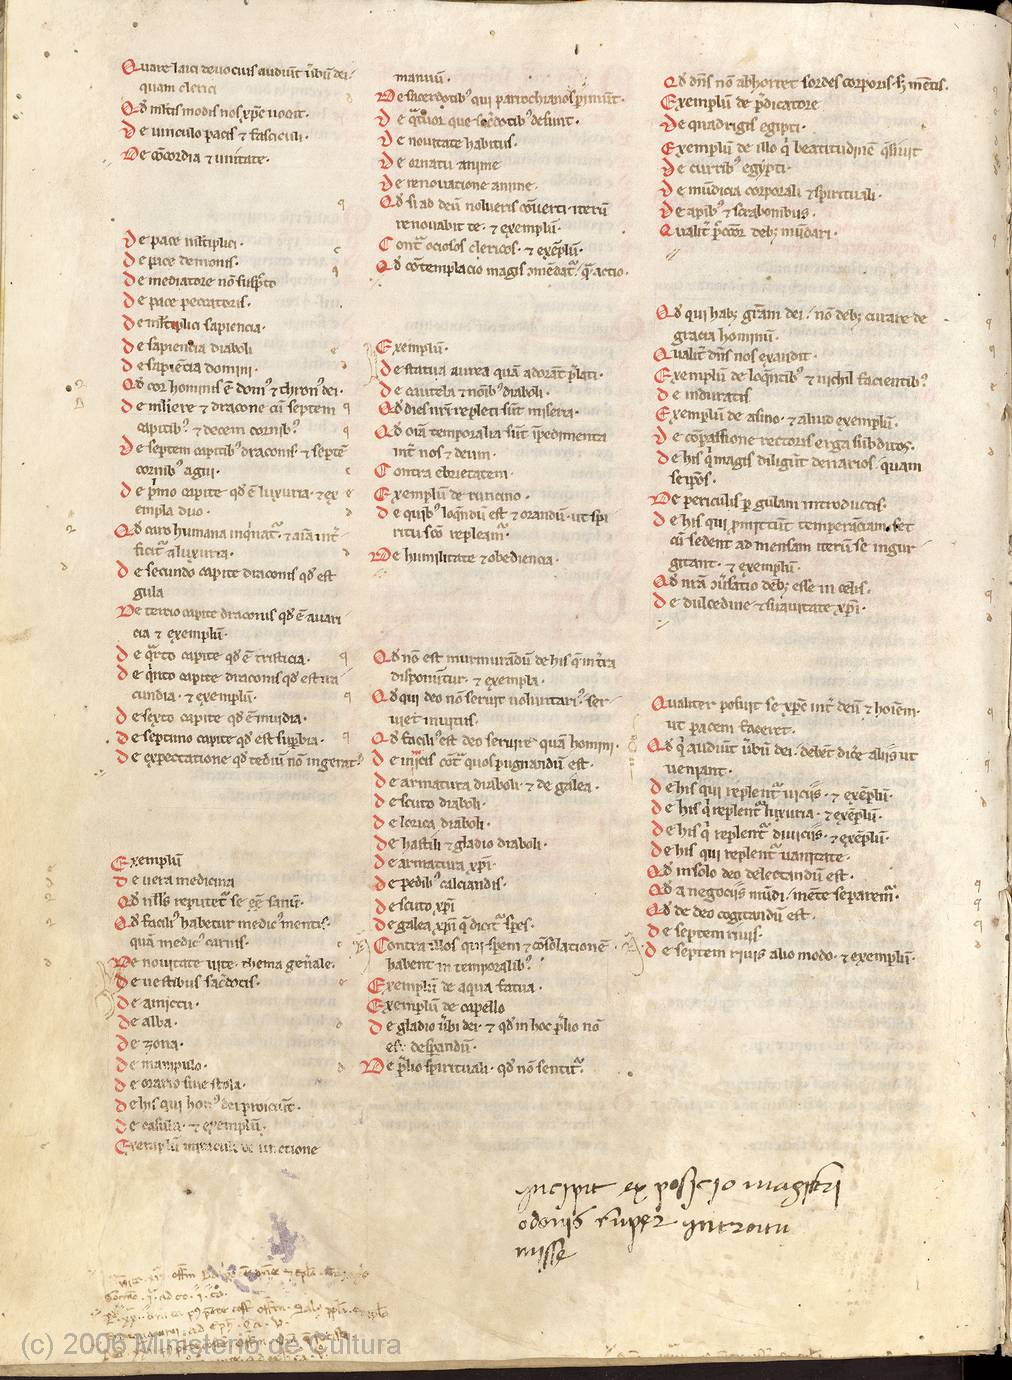 Quare laici devocius audiūt ūbū dei
quam clerici
Qd ml'tis modis nos xp̄c vocat.
De vinculo pacis & fasciculi.
De cōcordia & unitate.
De pace ml'tiplici.
De pace demonis.
De mediatore nō suspc̄to
De pace peccatoris.
De ml'tiplici sapiencia.
De sapiencia diaboli
De sapiēcia domini.
Qd cor hominis ē domꝰ & thronꝰ dei.
De mliere & dracone cū septem
capitibꝰ & decem cornibꝰ
De septem capitibꝰ draconis & septē
cornibꝰ agni.
De p̄mo capite qd ē luxuria & ex
empla duo.
Qd caro humana
ficit luxuria.
De secundo capite draconis qd est
gula
De tercio capite draconis qd ē avari
cia & exemplū.
De q̄rto capite qd ē tristicia.
De q̄nto capite draconis qd est ira
cundia & exemplū.
De sexto capite qd ē invidia.
De septimo capite qd est supbia.
De expectatione qd tediū nō ingerat.
Exemplū
De vera medicina
Qd nll's reputet se eē sanū.
Qd faciliꝰ habetur medicꝰ mentis
quā medicꝰ carnis.
De novitate vite. thema gen̄ale.
De vestibus sac̄dotis.
De amictu.
De alba.
De zona.
De manipulo.
De orario sive stola.
De his qui honꝰ dei proiciūt.
De casula & exemplū.
Exemplū miraculi de unctione
manuū.
De sacerdotibꝰ qui parrochianos p̄imūt.
De q̄tuor que sac̄dotibꝰ desunt.
De novitate habitus.
De ornatu anime
De renovatione anime.
Qd si ad deū nolueris cōverti iterū
renovabit te. & exemplū.
Contͣ ociosos clericos. & exēplū.
Qd cōtemplacio magis cōmēdatͬ q̄ actio.
Exemplū.
De statua aurea quā adorāt p̄lati.
De cautela & nōibꝰ diaboli.
Qd dies nr̄i repleti sūt miseria.
Qd oīa temporalia sūt īpedimenta
int̄ nos & deum.
Contra ebrietatem.
Exemplū de runcino.
De quibꝰ loq̄ndū est & orandū ut sp̄i
ritu scō repleamͬ.
De humilitate & obediencia.
Qd nō est murmurādū de his q̄
disponūtur. & exempla.
Qd qui deo nō servit voluntariꝰ ser
viet invitus.
Qd faciliꝰ est deo servire quā homini.
De inīcis cōtͣ quos pugnandū est.
De armatura diaboli & de galea.
De scuto diaboli.
De lorica diaboli.
De hastili & gladio diaboli.
De armatura xp̄i.
De pedibꝰ calciandis.
De scuto xp̄i
De galea xp̄i q̄ dicitͬ spes.
Contra illos qui spem & cōsolationē
habent in temporalibꝰ
Exemplū de aqua fatua.
Exemplū de capello
De gladio ūbi dei. & qd in hoc p̄lio nō
est despandū.
De p̄lio spirituali qd nō sentitͬ.
Qd dn̄s nō abhorret sordes corporis s; mētis.
Exemplū de p̄dicatore
De quadrigis egipti.
Exemplū de illo q̄ beatitudinē q̄sivit
De curribꝰ egypti.
De mūdicia corporali & spirituali.
De apibꝰ & scrabonibus.
Qualit̄ p̄ccor deb; mūdari.
Qd qui hab; grām dei nō deb; curare de
gracia hominū.
Qualit̄ dn̄s nos exaudit.
Exemplū de loq̄ntibꝰ & nichil facientibꝰ
De induratis
Exemplū de asino. & aliud exemplū.
De cōpassione rectoris erga subditos.
De his q̄ magis diligūt denarios quam
seipos.
De periculis p gulam introductis.
De his qui p̄mittūt temperaciam. set
cū sedent ad mensam iterū se ingur
gitant. & exemplū.
Qd nr̄a cōūsatio deb; esse in celis.
De dulcedine & suavitate xp̄i.
Qualiter posuit se xp̄c int̄ deū & hoīem
ut pacem faceret.
Qd q̄ audiūt ūbū dei. debēt dic̄e aliis ut
veniant.
De his qui replentͬ viciis & exēplū.
De his q̄ replentͬ luxuria. & exēplū.
De his q̄ replentͬ diviciis & exēplū.
De his qui replentͬ vanitate.
Qd in solo deo delectandū est.
Qd a negociis mūdi mēte separemͬ.
Qd de deo cogitandū est.
De septem rivis.
De septem rivis alio modo. & exemplū.
Incipit exposicio magistri
odonis super introitu
misse
(c) 2006 Ministerio de Cultura